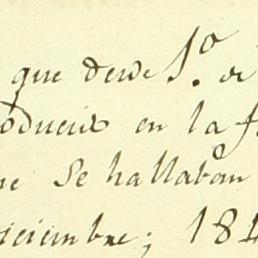 que desde 1.º de
oducido en la f
ne se hallaban
iciembre; 184